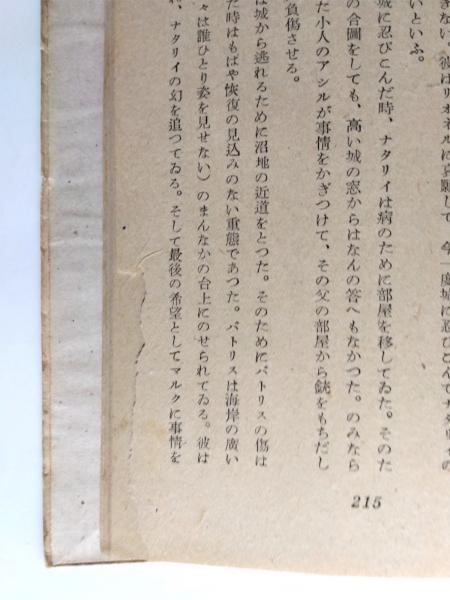 きない。彼はリオネルに哀願して、今一度城に忍びこんでナタリイの
いといふ。
城に忍びこんだ時、ナタリイは病のために部屋を移してゐた。そのた
の合圖をしても、高い城の窓からはなんの答へもなかつた。のみなら
た小人のアシルが事情をかぎつけて、その父の部屋から銃をもちだし
負傷させる。
は城から逃れるために沼地の近道をとつた。そのためにパトリスの傷は
た時はもはや恢復の見込みのない重態であつた。パトリスは海岸の廣い
々は誰ひとり姿を見せない）のまんなかの台上にのせられてゐる。彼は
、ナタリイの幻を追つてゐる。そして最後の希望としてマルクに事情を
215